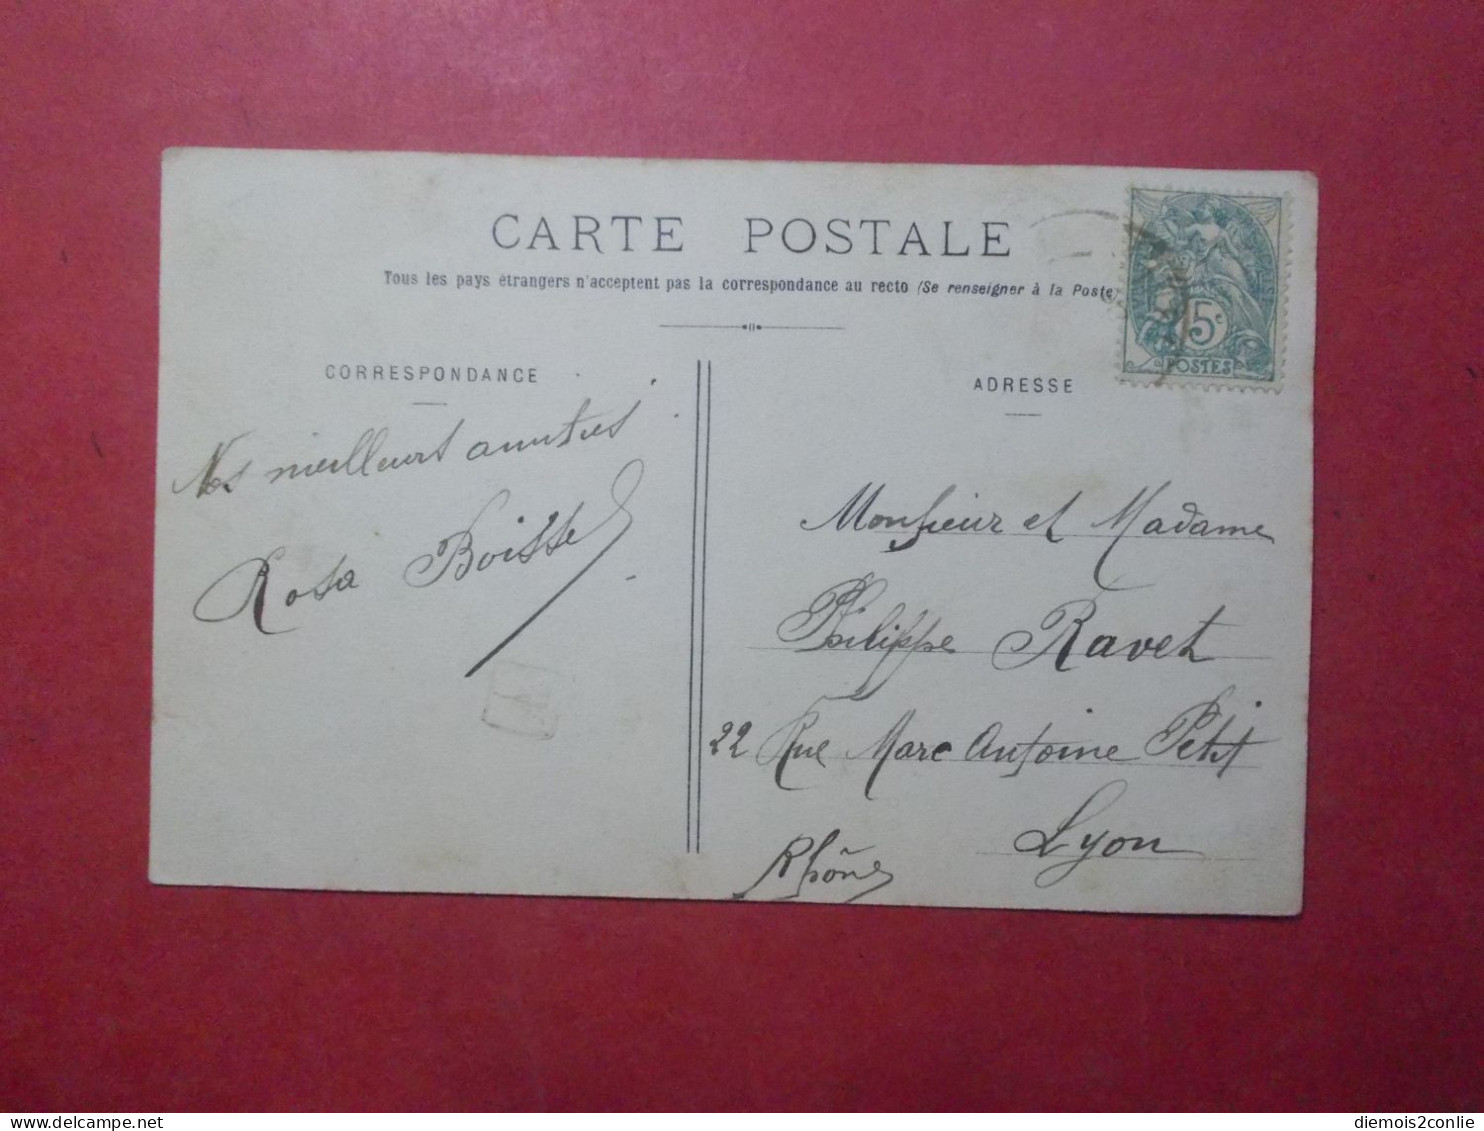 CARTE POSTALE
Tous les pays étrangers n'acceptent pas la correspondance au recto (Se renseigner à la Poste)
CORRESPONDANCE
ADRESSE
5c
POSTES
Nos meilleurs amitiés
Rosa
Monsieur et Madame
Philippe Ravet
22 Rue Marc Antoine Petit
Lyon
Rhône
diemois2conlie